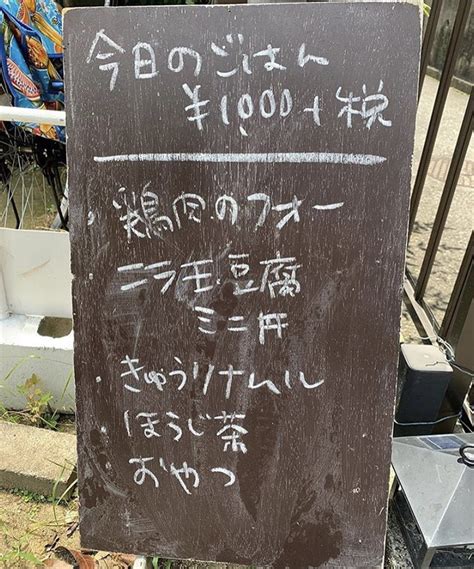 今日のごはん
¥1,000+税
・鶏肉のフォー
ニラ玉豆腐
ミニ丼
・きゅうりナムル
ほうじ茶
おやつ